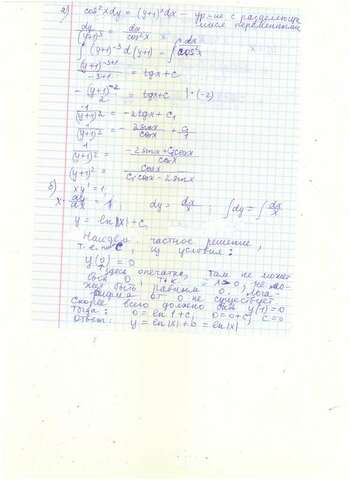 а) cos²x dy = (y+1)³ dx - ур-ие с разделяющимися переменными
dy/(y+1)³ = dx/cos²x
∫ (y+1)⁻³ d(y+1) = ∫ dx/cos²x
(y+1)⁻³⁺¹/-3+1 = tgx + C
- (y+1)⁻²/2 = tgx + C | · (-2)
1/(y+1)² = -2tgx + C₁
1/(y+1)² = - 2sinx/cosx + C₁/1
1/(y+1)² = -2sinx + C₁cosx/cosx
(y+1)² = cosx/C₁cosx - 2sinx
б) xy' = 1
x · dy/dx = 1; dy = dx/x; ∫dy = ∫dx/x
y = ln|x| + C
Найдём частное решение,
т.е. C, из условия:
y(0) = 0
здесь опечатка, там не может
быть 0, т.к. x≠0, не мо-
жет быть равным 0. Лога-
рифма от 0 не существует.
Скорее всего должно быть y(1)=0
Тогда: 0 = ln1 + C, 0 = 0 + C, C = 0
Ответ: y = ln|x| + 0 = ln|x|